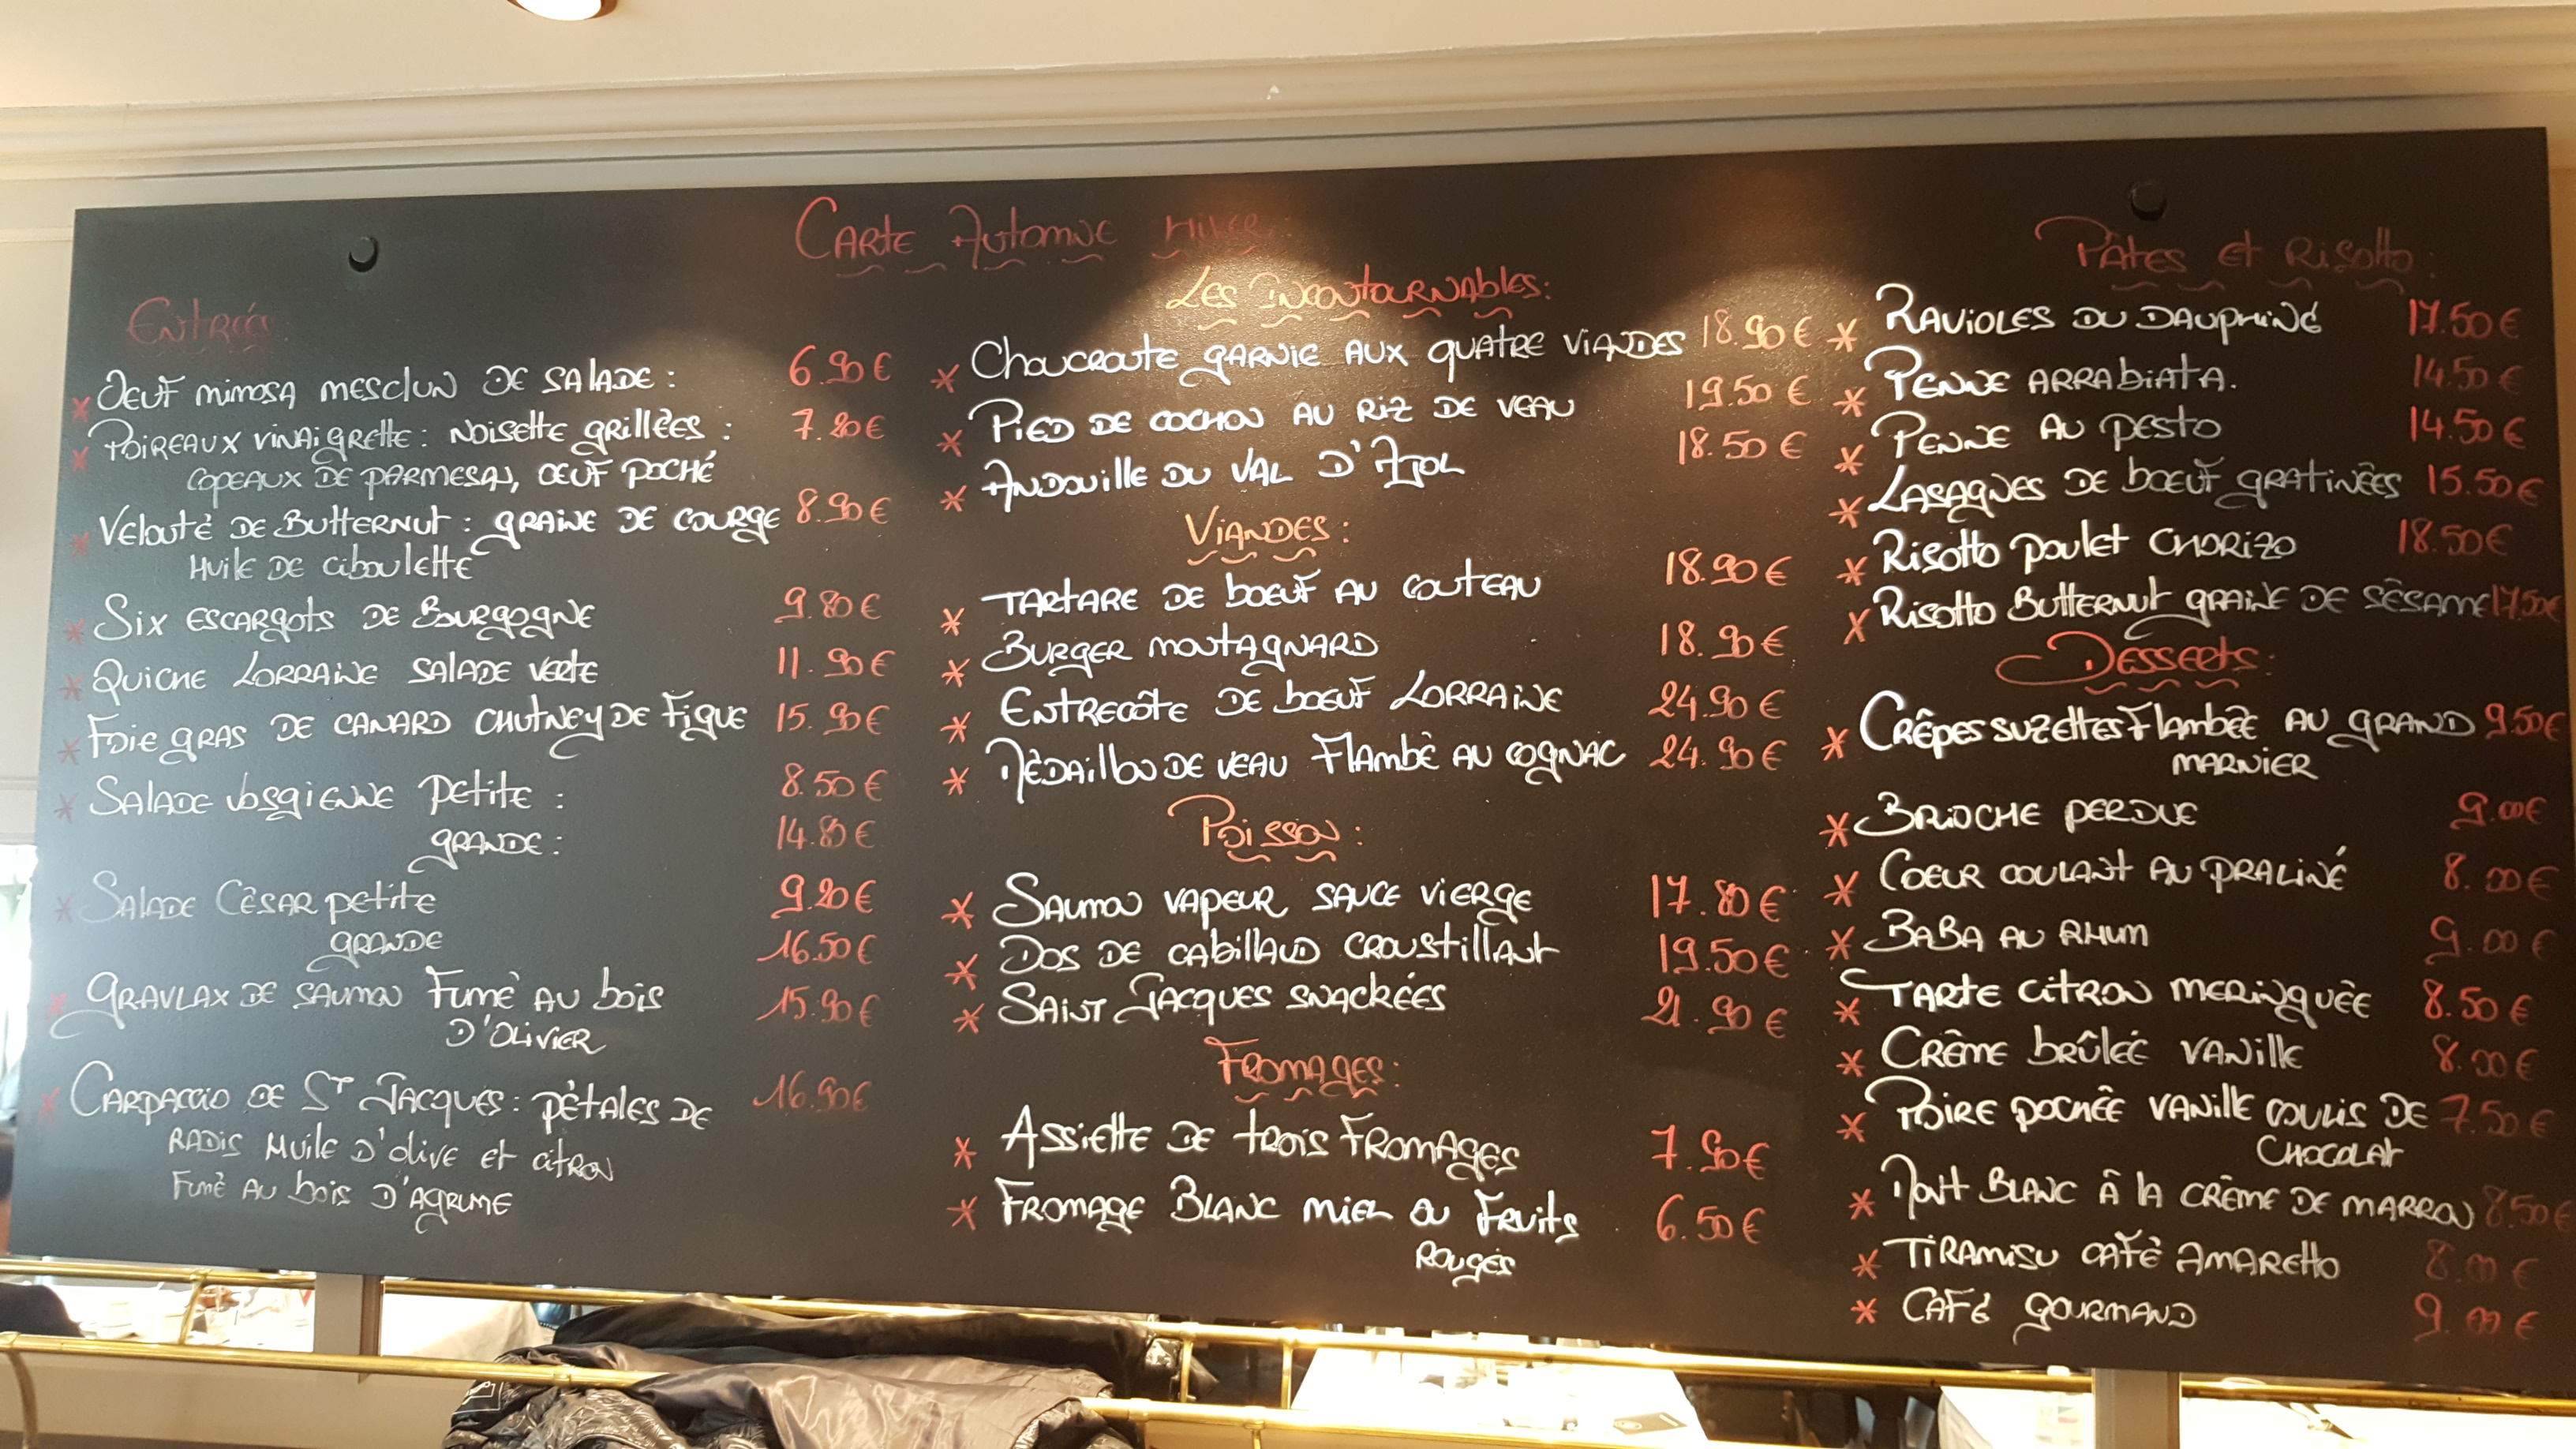 Carte Automne Hiver:
Entrées:
* Oeuf mimosa mesclun de salade : 6.90€
* Poireaux vinaigrette : noisette grillées : 7.20€
copeaux de parmesan, œuf poché
* Velouté de Butternut : graine de courge 8.90€
Huile de ciboulette
* Six escargots de Bourgogne 9.80€
* Quiche Lorraine salade verte 11.90€
* Foie gras de canard chutney de figue 15.90€
* Salade vosgienne petite : 8.50€
grande : 14.80€
* Salade César petite 9.20€
grande 16.50€
* Gravlax de saumon fumé au bois 15.90€
d'olivier
* Carpaccio de St Jacques : pétales de 16.90€
radis huile d'olive et citron
fumé au bois d'agrume
Les Incontournables:
* Choucroute garnie aux quatre viandes 18.90€
* Pied de cochon au riz de veau 19.50€
* Andouille du Val d'Ajol 18.50€
Viandes :
* Tartare de boeuf au couteau 18.90€
* Burger montagnard 18.90€
* Entrecôte de boeuf Lorraine 24.90€
* Médaillon de veau flambé au cognac 24.90€
Poisson :
* Saumon vapeur sauce vierge 17.80€
* Dos de cabillaud croustillant 19.50€
* Saint Jacques snackées 21.90€
Fromages :
* Assiette de trois fromages 7.90€
* Fromage Blanc miel ou fruits 6.50€
rouges
Pâtes et Risotto :
* Ravioles du Dauphiné 17.50€
* Penne arrabiata. 14.50€
* Penne au pesto 14.50€
* Lasagnes de boeuf gratinées 15.50€
* Risotto poulet chorizo 18.50€
* Risotto Butternut graine de sésame 17.50€
Desserts :
* Crêpes suzettes flambée au grand 9.50€
marnier
* Brioche perdue 9.00€
* Coeur coulant au praliné 8.00€
* Baba au rhum 9.00€
* Tarte citron meringuée 8.50€
* Crême brûlée vanille 8.00€
* Poire pochée vanille coulis de 7.50€
chocolat
* Mont Blanc à la crème de marron 8.50€
* Tiramisu café amaretto 8.00€
* Café gourmand 9.00€